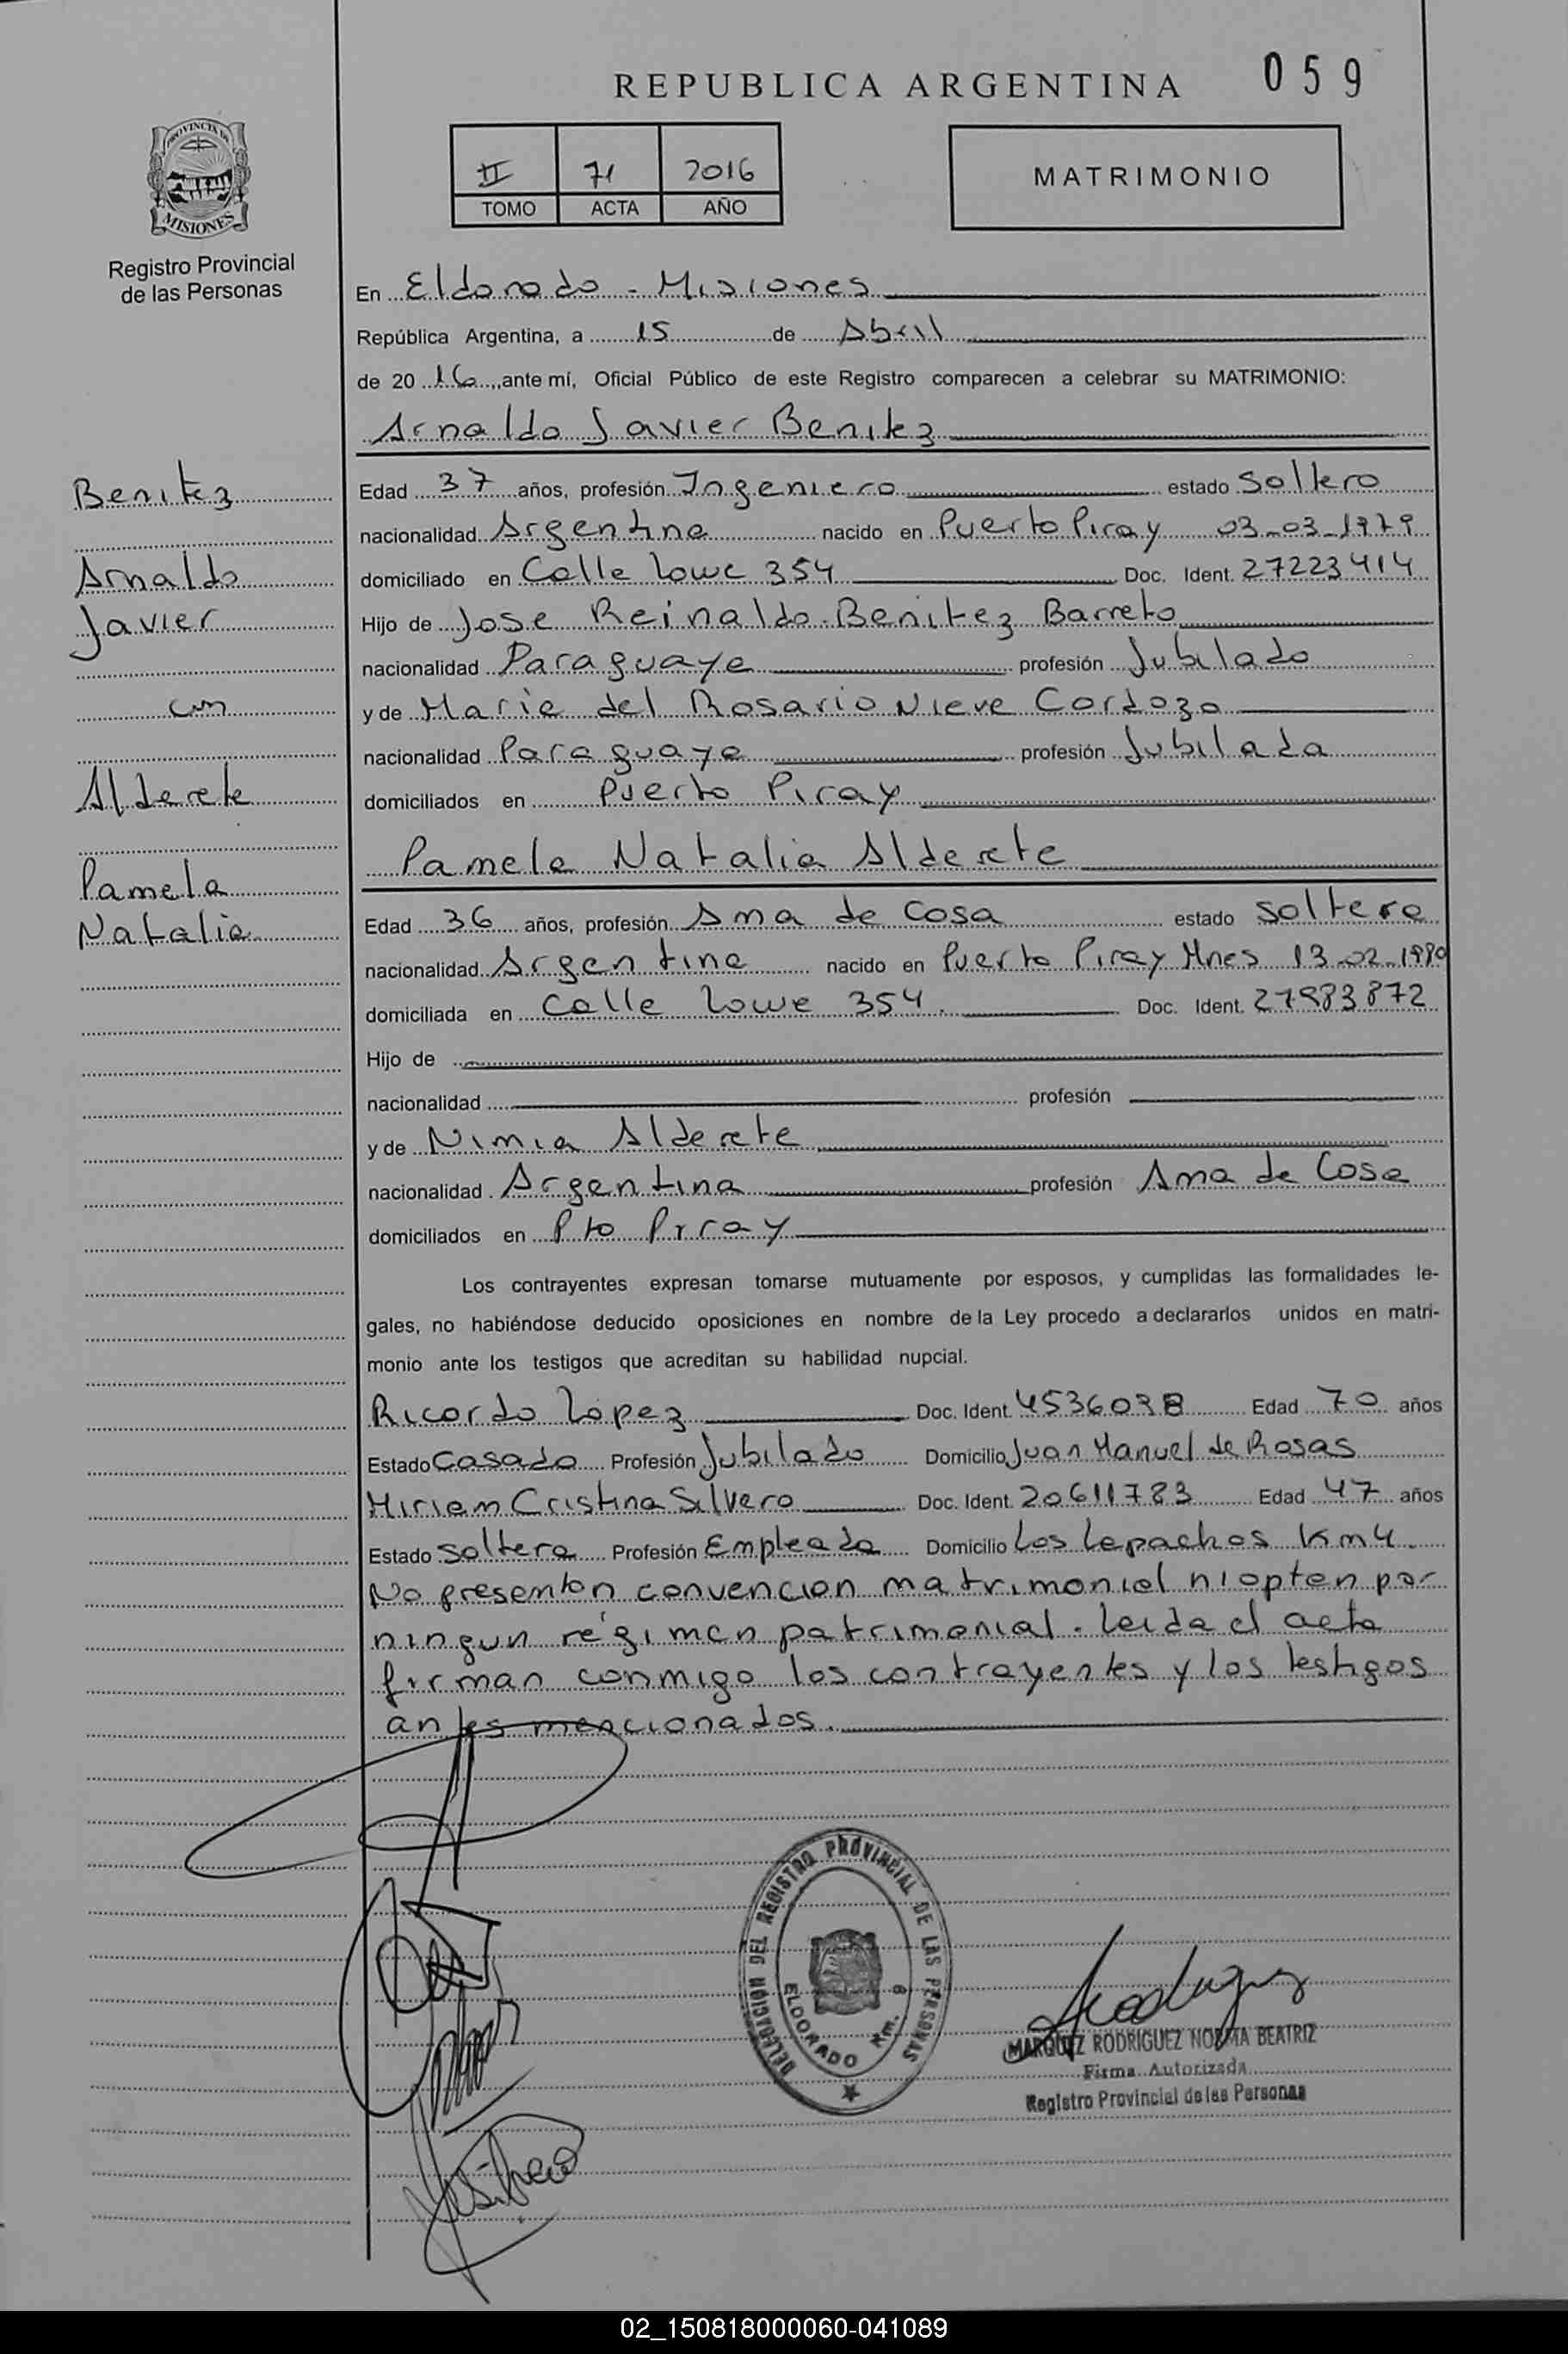 REPUBLICA ARGENTINA 059
PROVINCIA DE
MISIONES
Registro Provincial
de las Personas
II 71 2016
TOMO ACTA AÑO
MATRIMONIO
En Eldorado - Misiones
República Argentina, a 15 de Abril
de 20 16, ante mí, Oficial Público de este Registro comparecen a celebrar su MATRIMONIO:
Arnaldo Javier Benitez
Benitez
Arnaldo
Javier
con
Alderete
Pamela
Natalia
Edad 37 años, profesión Ingeniero estado Soltero
nacionalidad Argentina nacido en Puerto Piray 03-03-1979
domiciliado en Calle Lowe 354 Doc. Ident. 27223414
Hijo de Jose Reinaldo Benitez Barreto
nacionalidad Paraguaya profesión Jubilado
y de Maria del Rosario Nieve Cardozo
nacionalidad Paraguaya profesión Jubilada
domiciliados en Puerto Piray
Pamela Natalia Alderete
Edad 36 años, profesión Ama de Casa estado Soltera
nacionalidad Argentina nacido en Puerto Piray Mnes 13-02-1980
domiciliada en Calle Lowe 354. Doc. Ident. 27983872
Hijo de
nacionalidad profesión
y de Nimia Alderete
nacionalidad Argentina profesión Ama de Casa
domiciliados en Pto Piray
Los contrayentes expresan tomarse mutuamente por esposos, y cumplidas las formalidades le-
gales, no habiéndose deducido oposiciones en nombre de la Ley procedo a declararlos unidos en matri-
monio ante los testigos que acreditan su habilidad nupcial.
Ricardo Lopez Doc. Ident. 4536098 Edad 70 años
Estado Casado Profesión Jubilado Domicilio Juan Manuel de Rosas
Miriam Cristina Silvero Doc. Ident. 20611783 Edad 47 años
Estado Soltera Profesión Empleada Domicilio Los Lapachos Km 4.
No presentan convencion matrimonial ni optan por
ningun régimen patrimonial. Leida el acta
firman conmigo los contrayentes y los testigos
antes mencionados.
DELEGACION DEL REGISTRO PROVINCIAL DE LAS PERSONAS
ELDORADO Km. 9
MARQUEZ RODRIGUEZ NORMA BEATRIZ
Firma Autorizada
Registro Provincial de las Personas
02_150818000060-041089